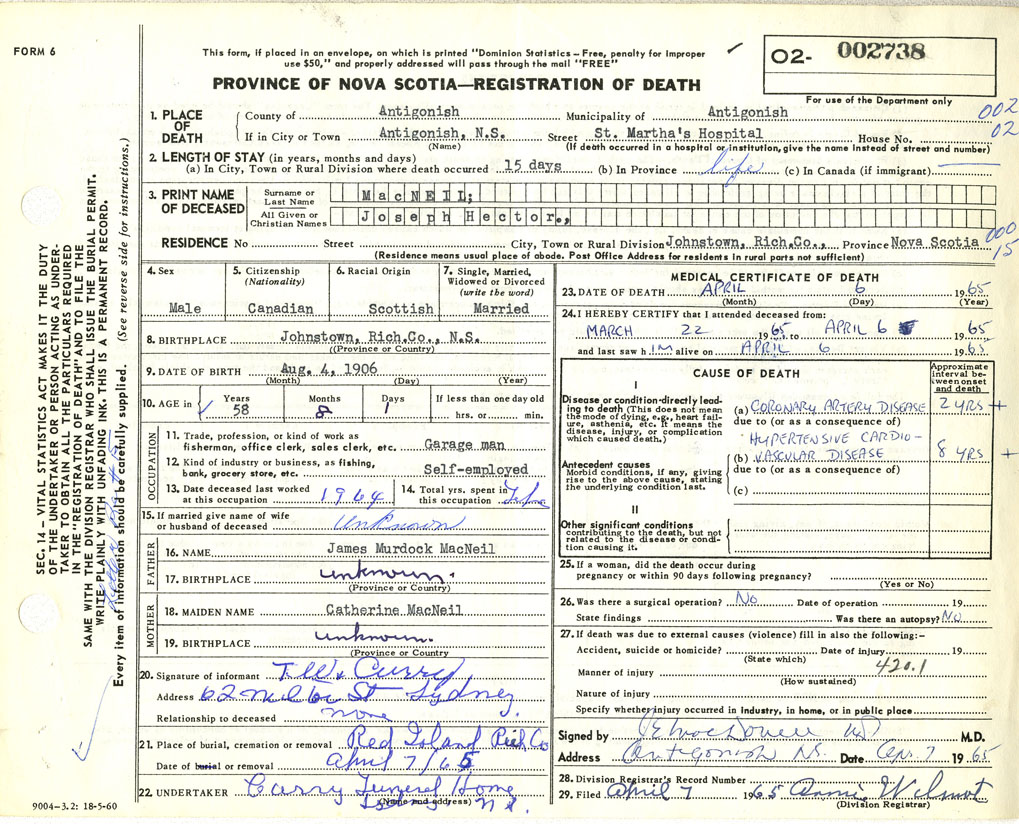 FORM 6
This form, if placed in an envelope, on which is printed "Dominion Statistics – Free, penalty for improper
use $50," and properly addressed will pass through the mail "FREE"
O2- 002738
PROVINCE OF NOVA SCOTIA—REGISTRATION OF DEATH
For use of the Department only
1. PLACE OF DEATH
County of Antigonish Municipality of Antigonish 002
If in City or Town Antigonish, N.S. Street St. Martha's Hospital House No. 02
(Name) (If death occurred in a hospital or institution, give the name instead of street and number)
2. LENGTH OF STAY (in years, months and days)
(a) In City, Town or Rural Division where death occurred 15 days (b) In Province life (c) In Canada (if immigrant)
3. PRINT NAME OF DECEASED
Surname or Last Name MacNEIL;
All Given or Christian Names Joseph Hector.,
RESIDENCE No Street City, Town or Rural Division Johnstown, Rich.Co., Province Nova Scotia 000 15
(Residence means usual place of abode. Post Office Address for residents in rural parts not sufficient)
4. Sex Male
5. Citizenship (Nationality) Canadian
6. Racial Origin Scottish
7. Single, Married, Widowed or Divorced (write the word) Married
8. BIRTHPLACE Johnstown, Rich.Co., N.S.
(Province or Country)
9. DATE OF BIRTH Aug. 4, 1906
(Month) (Day) (Year)
10. AGE in Years 58 Months 8 Days 1 If less than one day old
hrs. or min.
OCCUPATION
11. Trade, profession, or kind of work as
fishermen, office clerk, sales clerk, etc. Garage man
12. Kind of industry or business, as fishing,
bank, grocery store, etc. Self-employed
13. Date deceased last worked
at this occupation 1964
14. Total yrs. spent in
this occupation
15. If married give name of wife
or husband of deceased Unknown
FATHER
16. NAME James Murdock MacNeil
17. BIRTHPLACE unknown.
(Province or Country)
MOTHER
18. MAIDEN NAME Catherine MacNeil
19. BIRTHPLACE unknown.
(Province or Country
20. Signature of informant T.W. Curry
Address 62 St Sydney.
Relationship to deceased none
21. Place of burial, cremation or removal Red Island Rich Co
Date of burial or removal April 7/65
22. UNDERTAKER Curry Funeral Home
(Name and address) N.S.
9004-3.2: 18-5-60
MEDICAL CERTIFICATE OF DEATH
23. DATE OF DEATH APRIL 6 1965
(Month) (Day) (Year)
24. I HEREBY CERTIFY that I attended deceased from:
MARCH 22 1965 to APRIL 6 1965
and last saw h IM alive on APRIL 6 1965
CAUSE OF DEATH
Approximate interval between onset and death
I
Disease or condition directly leading to death (This does not mean the mode of dying, e.g., heart failure, asthenia, etc. It means the disease, injury, or complication which caused death.)
(a) CORONARY ARTERY DISEASE 2 YRS +
due to (or as a consequence of)
HYPERTENSIVE CARDIO-
(b) VASCULAR DISEASE 8 YRS +
due to (or as a consequence of)
Antecedent causes
Morbid conditions, if any, giving rise to the above cause, stating the underlying condition last.
(c)
II
Other significant conditions
contributing to the death, but not related to the disease or condition causing it.
25. If a woman, did the death occur during
pregnancy or within 90 days following pregnancy?
(Yes or No)
26. Was there a surgical operation? No Date of operation 19
State findings Was there an autopsy? No
27. If death was due to external causes (violence) fill in also the following:–
Accident, suicide or homicide? Date of injury 19
(State which)
420.1
Manner of injury
(How sustained)
Nature of injury
Specify whether injury occurred in industry, in home, or in public place
Signed by M.D.
Address Antigonish N.S. Date Apr. 7 1965
28. Division Registrar's Record Number
29. Filed April 7 1965 Annie Wilmot
(Division Registrar)
SEC. 14 – VITAL STATISTICS ACT MAKES IT THE DUTY
OF THE UNDERTAKER OR PERSON ACTING AS UNDER-
TAKER TO OBTAIN ALL THE PARTICULARS REQUIRED
IN THE "REGISTRATION OF DEATH" AND TO FILE THE
SAME WITH THE DIVISION REGISTRAR WHO SHALL ISSUE THE BURIAL PERMIT.
WRITE PLAINLY WITH UNFADING INK. THIS IS A PERMANENT RECORD.
Every item of information should be carefully supplied. (See reverse side for instructions.)